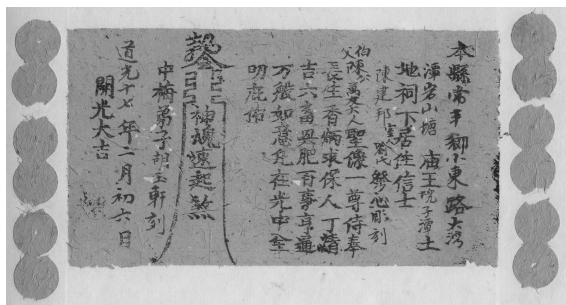 本縣常平鄉小東路大湾
潭岩山塘 庙王院子潭土
地祠下居住信士
陳建邦 室 發心彫刻
伯父陳公萬 聖像一尊侍奉
長生香烟求保人丁清
吉六畜興肥百事亨通
万般如意凡在光中全
叨庇佑
神魂速起煞
中梅弟子胡玉軒刻
道光十七年二月初六日
開光大吉